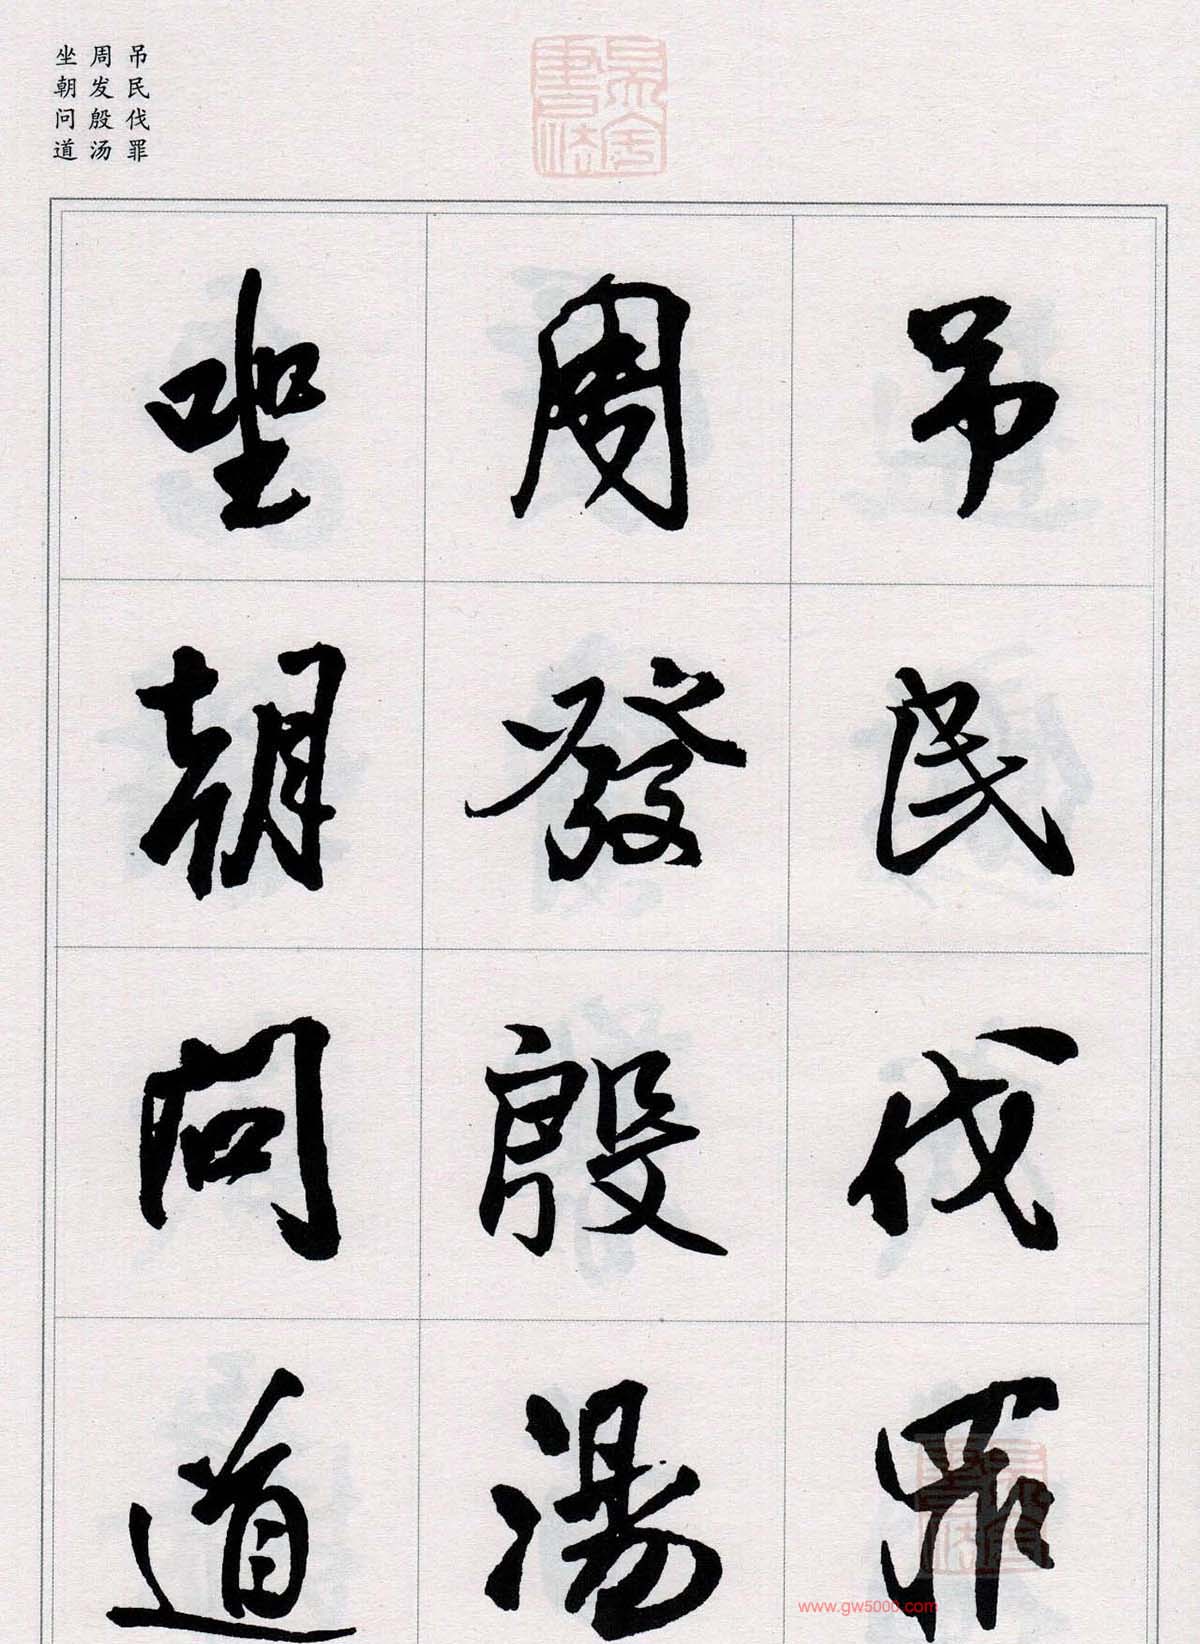 吊民伐罪
周发殷汤
坐朝问道
吊民伐罪
周發殷湯
坐朝問道
www.gw5000.com